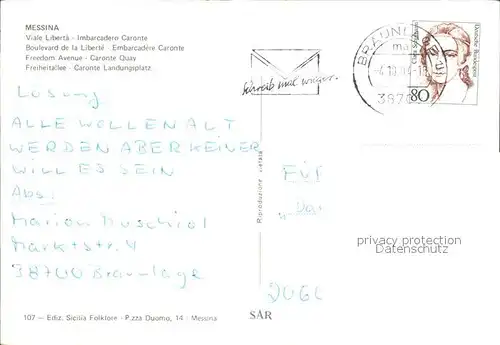 MESSINA
Viale Libertà - Imbarcadero Caronte
Boulevard de la Liberté - Embarcadère Caronte
Freedom Avenue - Caronte Quay
Freiheitallee - Caronte Landungsplatz
Schreib mal wieder.
80
Lösung
ALLE WOLLEN ALT
WERDEN ABER KEINER
WILL ES SEIN
Abs:
Marion Duschiol
Marktstr. 4
38700 Braunlage
Riproduzione vietata
FÜR
privacy protection
Datenschutz
107 - Ediz. Sicilia Folklore - P.zza Duomo, 14 - Messina
SAR